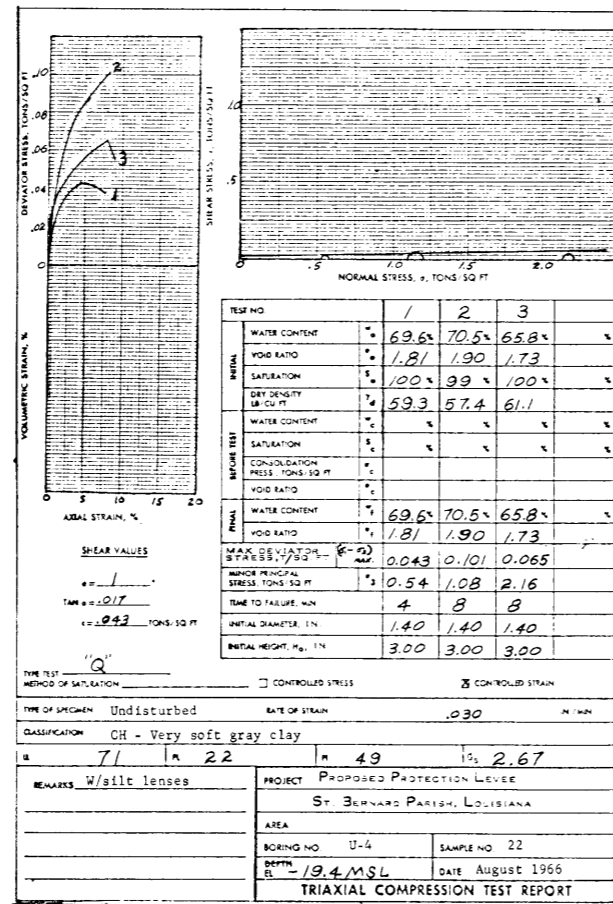 DEVIATOR STRESS, TONS/SQ FT
.10
.08
.06
.04
.02
0
2
3
1
VOLUMETRIC STRAIN, %
0 5 10 15 20
AXIAL STRAIN, %
SHEAR STRESS, τ, TONS/SQ FT
1.0
.5
0 .5 1.0 1.5 2.0
NORMAL STRESS, σ, TONS/SQ FT
TEST NO. 1 2 3
INITIAL
WATER CONTENT w o 69.6% 70.5% 65.8% %
VOID RATIO e o 1.81 1.90 1.73
SATURATION S o 100 % 99 % 100 % %
DRY DENSITY LB/CU FT γ d 59.3 57.4 61.1
BEFORE TEST
WATER CONTENT w c % % % %
SATURATION S c % % % %
CONSOLIDATION PRESS., TONS/SQ FT σ c
VOID RATIO e c
FINAL
WATER CONTENT w f 69.6% 70.5% 65.8% %
VOID RATIO e f 1.81 1.90 1.73
MAX DEVIATOR STRESS, T/SQ FT MAX. 0.043 0.101 0.065
MINOR PRINCIPAL STRESS, TONS/SQ FT σ 3 0.54 1.08 2.16
TIME TO FAILURE, MIN 4 8 8
INITIAL DIAMETER, IN. 1.40 1.40 1.40
INITIAL HEIGHT, H₀, IN 3.00 3.00 3.00
SHEAR VALUES
ø = 1 °
TAN ø = .017
c = .043 TONS/SQ FT
TYPE TEST "Q"
METHOD OF SATURATION
CONTROLLED STRESS
X CONTROLLED STRAIN
TYPE OF SPECIMEN Undisturbed RATE OF STRAIN .030 IN/MIN
CLASSIFICATION CH - Very soft gray clay
LL 71 PL 22 PI 49 Gs 2.67
REMARKS W/silt lenses
PROJECT PROPOSED PROTECTION LEVEE
ST. BERNARD PARISH, LOUISIANA
AREA
BORING NO. U-4 SAMPLE NO. 22
DEPTH EL -19.4 MSL DATE August 1966
TRIAXIAL COMPRESSION TEST REPORT